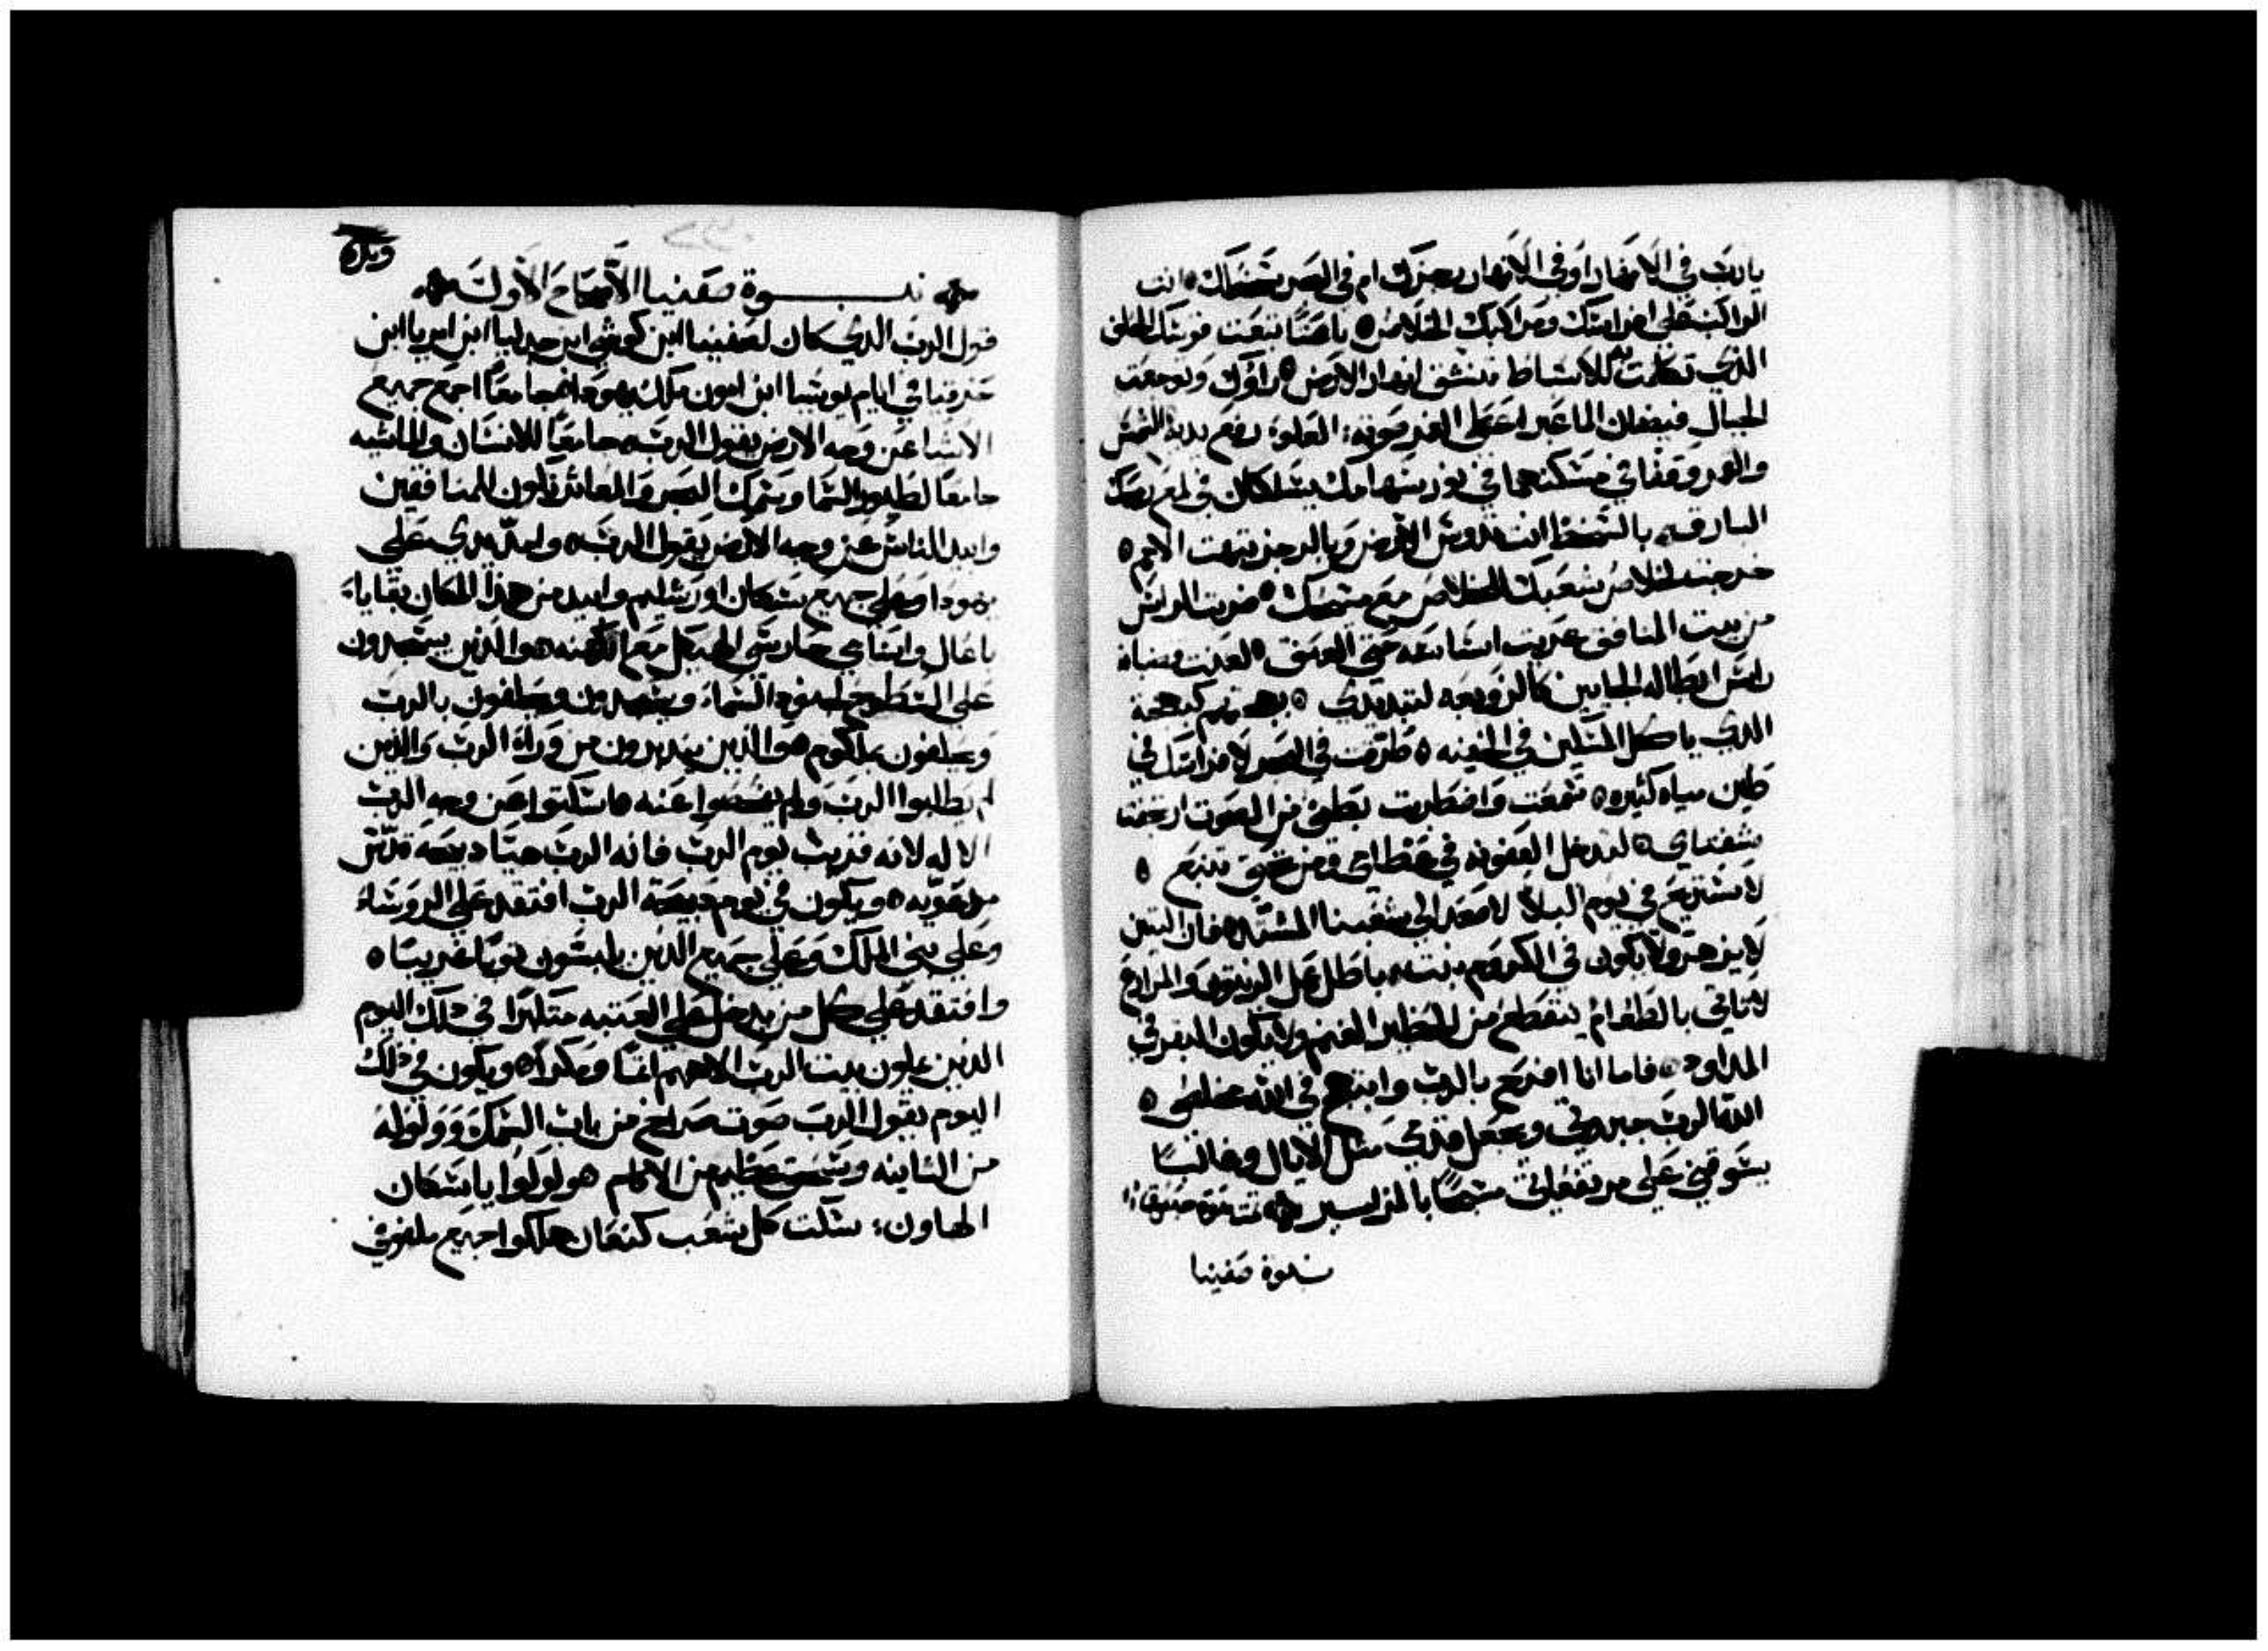 يارب في الانهار او في الانهار رجزك ام في البحر سخطك ه انت
الراكب على افراستك ومراكبك الخلاص ه باهضًا تبعت قوسك الحلف
الذي تكلمت به للاسباط تنشق انهار الارض ه راوك وتوجعت
الجبال فيضان الما عبر اعطى الغمر صوته العلو رفع يديه الشمس
والقمر وقفا في مسكنهما في نور سهامك يسلكان في لمع رمحك
البارقه بالسخط انت تدوس الارض وبالرجز تبهت الامم ه
خرجت لخلاص شعبك لخلاص مع مسيحك ه ضربت الراس
من بيت المنافق عريت اساسه حتى العنق ه لعنت
راس ابطاله الجايين كالزوبعه لتبديدي ه بهجتهم كبهجة
الذي ياكل المسكين في الخفيه ه طرقت في البحر لافراسك في
طين مياه كثيره ه سمعت واضطربت بطني من الصوت ارتجفتا
شفتاي ه لتدخل العفونه في عظامي ومن تحتي تنبع ه
لاستريح في يوم البلا لاصعد الى شعبنا المشتد ه فان التين
لا يزهر ولا يكون في الكروم نبت باطل عمل الزيتون والمزارع
لا تاتي بالطعام ينقطع من الحظير الغنم ولا يكون البقر في
المداود ه فاما انا افرح بالرب وابتهج في الله مخلصي ه
الله الرب جبروتي ويجعل قدمي مثل الايال وغالبًا
يسوقني على مرتفعاتي مسبحًا بالمزامير تمت نبوة حبقوق
نبوة صفنيا
نبوة صفنيا الاصحاح الاول
قول الرب الذي كان لصفنيا ابن كوشي ابن جدليا ابن امريا ابن
حزقيا في ايام يوشيا ابن امون ملك يهودا ه جامعًا اجمع جميع
الاشيا عن وجه الارض يقول الرب ه جامعًا للانسان والماشيه
جامعًا لطيور السما وسمك البحر والمعاثر تكون للمنافقين
وابيد الناس عن وجه الارض يقول الرب ه وامد يدي على
يهودا وعلى جميع سكان اورشليم وابيد من هذا المكان بقايا
باعال واسامي حارسي الهيكل مع الكهنه ه والذين يسجدون
على السطوح لجنود السماء ويسجدون ويحلفون بالرب
ويحلفون بملكوم ه والذين يرتدون من وراء الرب والذين
لم يطلبوا الرب ولم يفحصوا عنه ه اسكتوا من وجه الرب
الاله لانه قريب يوم الرب فانه الرب هيا ذبيحه قدس
مدعويه ه ويكون في يوم ذبيحة الرب افتقد على الروساء
وعلى بني الملك وعلى جميع الذين يلبسون ثوبًا غريبًا ه
وافتقد على كل من يدخل على العتبه متكبرًا في ذلك اليوم
الذين يملون بيت الرب الاههم اثمًا ومكرًا ه ويكون في ذلك
اليوم يقول الرب صوت صراخ من باب السمك وولوله
من الثانيه وسحق عظيم من الاكام ه ولولوا يا سكان
الهاون سكت كل شعب كنعان هلكوا جميع ملفوفي